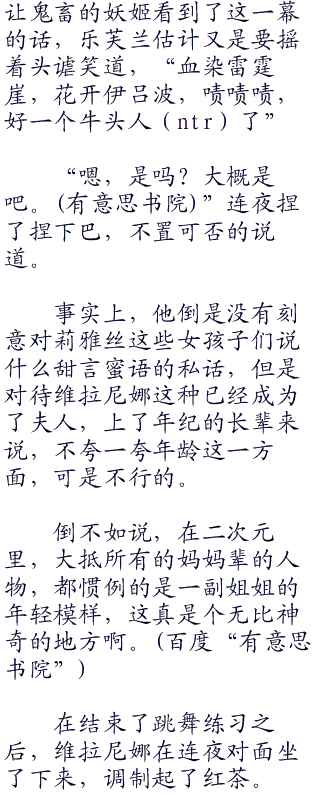 让鬼畜的妖姬看到了这一幕
的话，乐芙兰估计又是要摇
着头谑笑道，“血染雷霆
崖，花开伊吕波，啧啧啧，
好一个牛头人（ntr）了”
“嗯，是吗？大概是
吧。(有意思书院)”连夜捏
了捏下巴，不置可否的说
道。
事实上，他倒是没有刻
意对莉雅丝这些女孩子们说
什么甜言蜜语的私话，但是
对待维拉尼娜这种已经成为
了夫人，上了年纪的长辈来
说，不夸一夸年龄这一方
面，可是不行的。
倒不如说，在二次元
里，大抵所有的妈妈辈的人
物，都惯例的是一副姐姐的
年轻模样，这真是个无比神
奇的地方啊。(百度“有意思
书院”)
在结束了跳舞练习之
后，维拉尼娜在连夜对面坐
了下来，调制起了红茶。